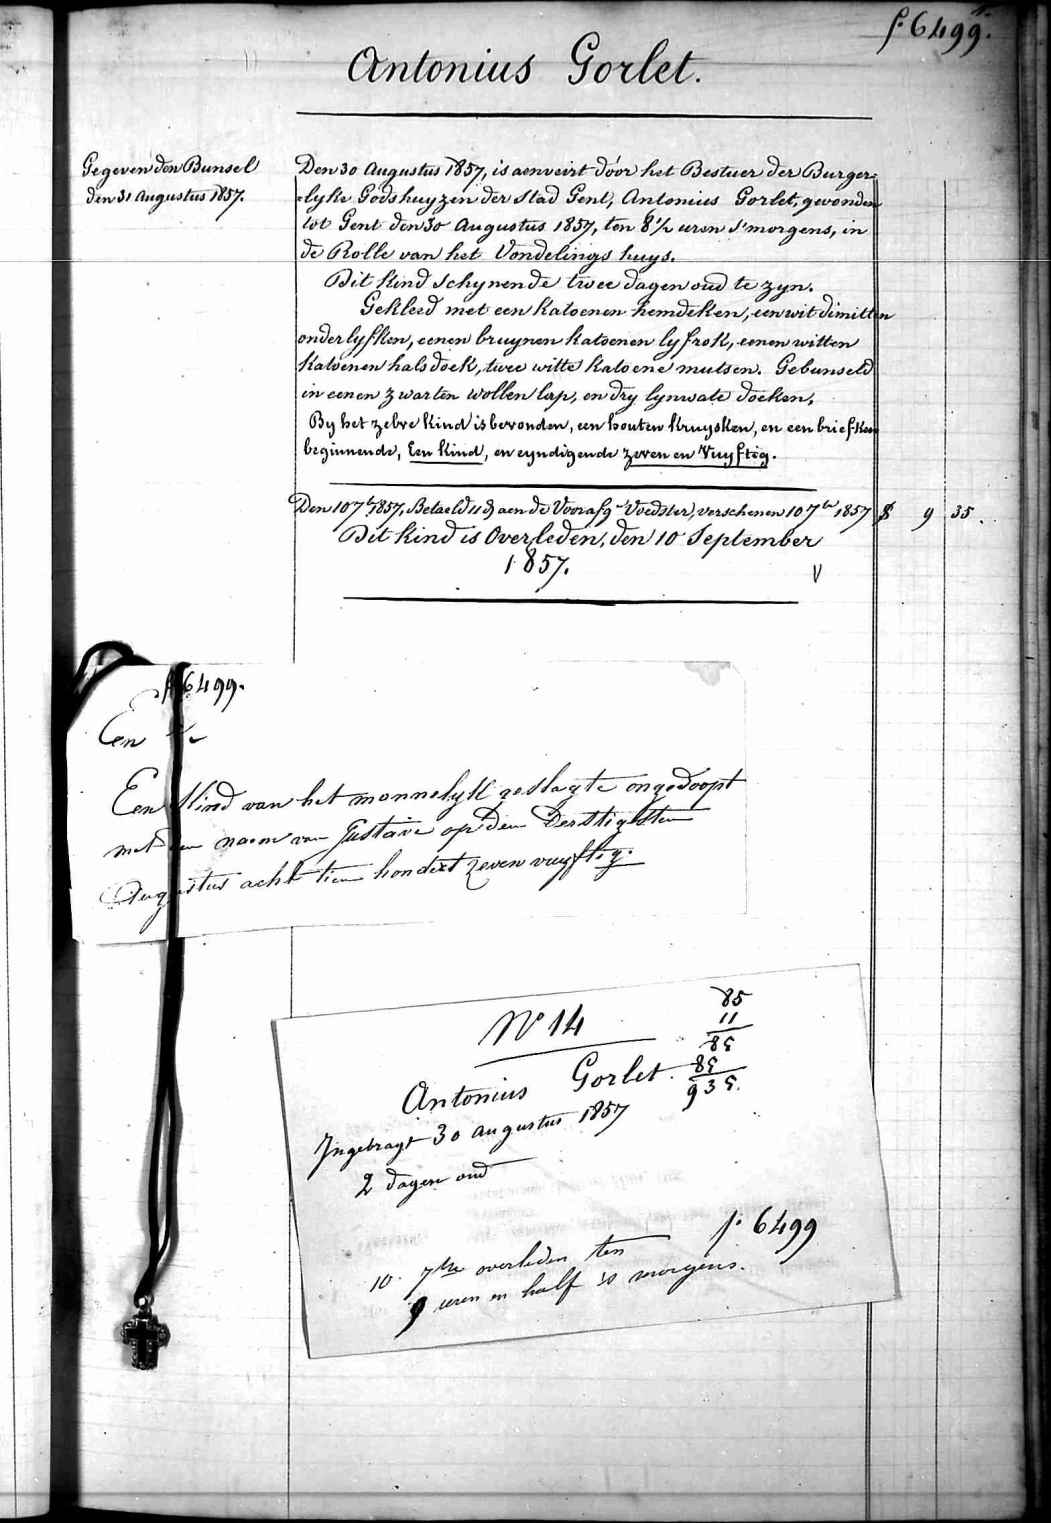 f. 6499.
Antonius Gorlet.
Gegeven den Bunsel
den 31 Augustus 1857.
Den 30 Augustus 1857, is aenveirt dóor het Bestuer der Burger=
=lyke Godshuyzen der Stad Gent, Antonius Gorlet, gevonden
tot Gent den 30 Augustus 1857, ten 8 1/2 uren s'morgens, in
de Rolle van het Vondelings huys.
Dit kind schynende twee dagen oud te zyn.
Gekleed met een katoenen hemdeken, een wit dimitten
onderlyfken, eenen bruynen katoenen lyfrok, eenen witten
katoenen halsdoek, twee witte katoene mutsen. Gebunseld
in eenen zwarten wollen lap, en dry lynwate doeken,
By het zelve kind is bevonden, een houten kruysken, en een briefken
beginnende, Een kind, en eyndigende zeven en Vuyftig.
Den 10 7br 1857, Betaeld 11 d aen de Voorafg. Voedster, verschenen 10 7br 1857 $ 9 35.
Dit kind is Overleden, den 10 September
1857.
f 6499.
Een
Een Kind van het mannelyk geslagte ongedoopt
met den naam van Gustave op den Derttigsten
Augustus acht tien hondert zeven vuyftig.
N° 14
85
11
85
85
935.
Antonius Gorlet.
Ingebragt 30 augustus 1857
2 dagen oud
f. 6499
10. 7bre overleden ten
9 uren en half 's morgens.